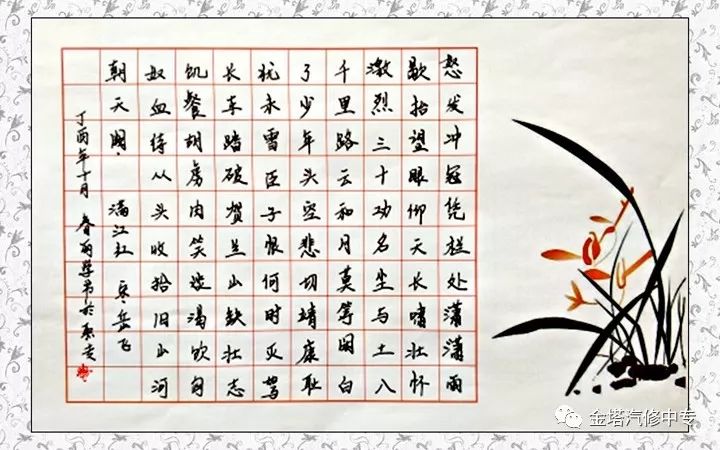 怒发冲冠凭栏处潇潇雨
歇抬望眼仰天长啸壮怀
激烈三十功名尘与土八
千里路云和月莫等闲白
了少年头空悲切靖康耻
犹未雪臣子恨何时灭驾
长车踏破贺兰山缺壮志
饥餐胡虏肉笑谈渴饮匈
奴血待从头收拾旧山河
朝天阙。 满江红 宋·岳飞
丁酉年十月 春丽学书於
金塔汽修中专